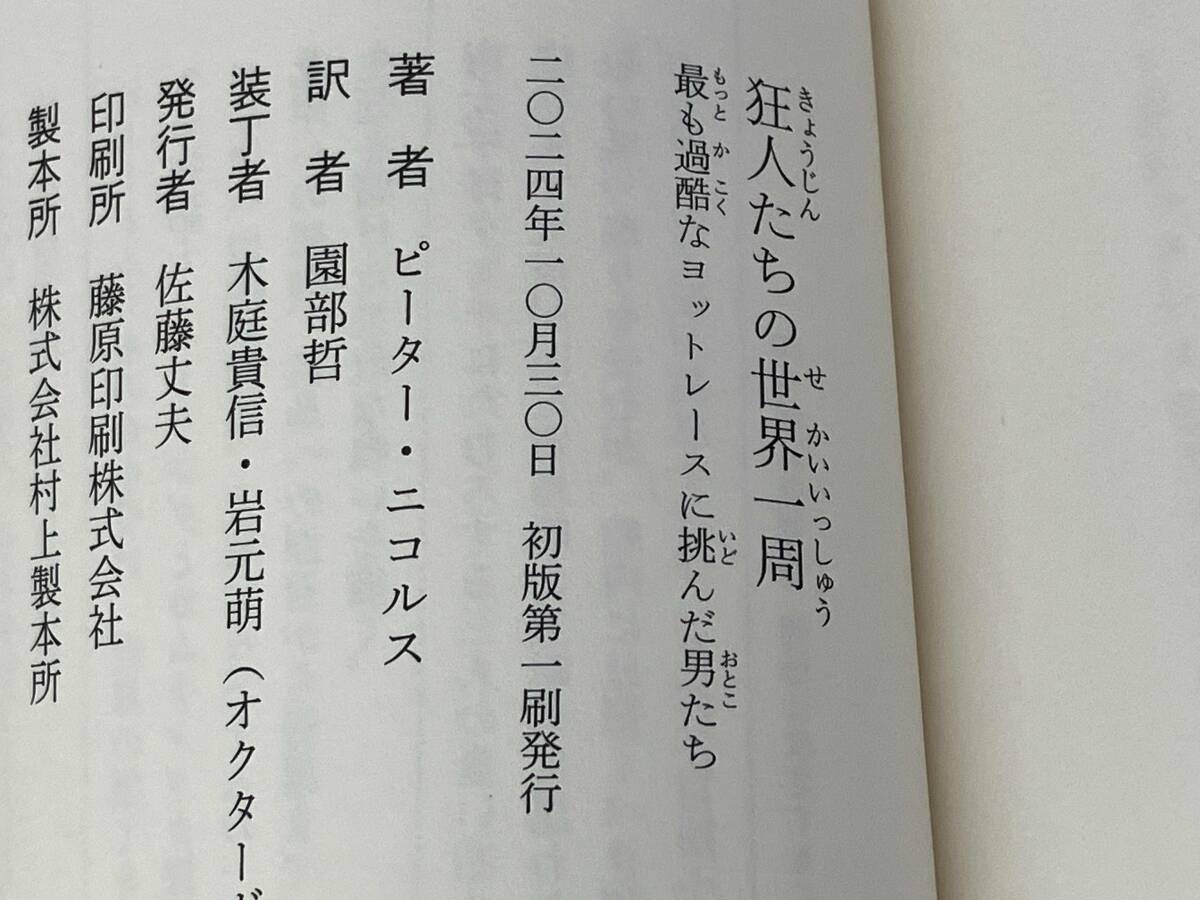 狂人たちの世界一周
きょうじん せ かいいっしゅう
最も過酷なヨットレースに挑んだ男たち
もっと か こく いど おとこ
二〇二四年一〇月三〇日 初版第一刷発行
著者 ピーター・ニコルス
訳者 園部哲
装丁者 木庭貴信・岩元萌（オクターヴ
発行者 佐藤丈夫
印刷所 藤原印刷株式会社
製本所 株式会社村上製本所